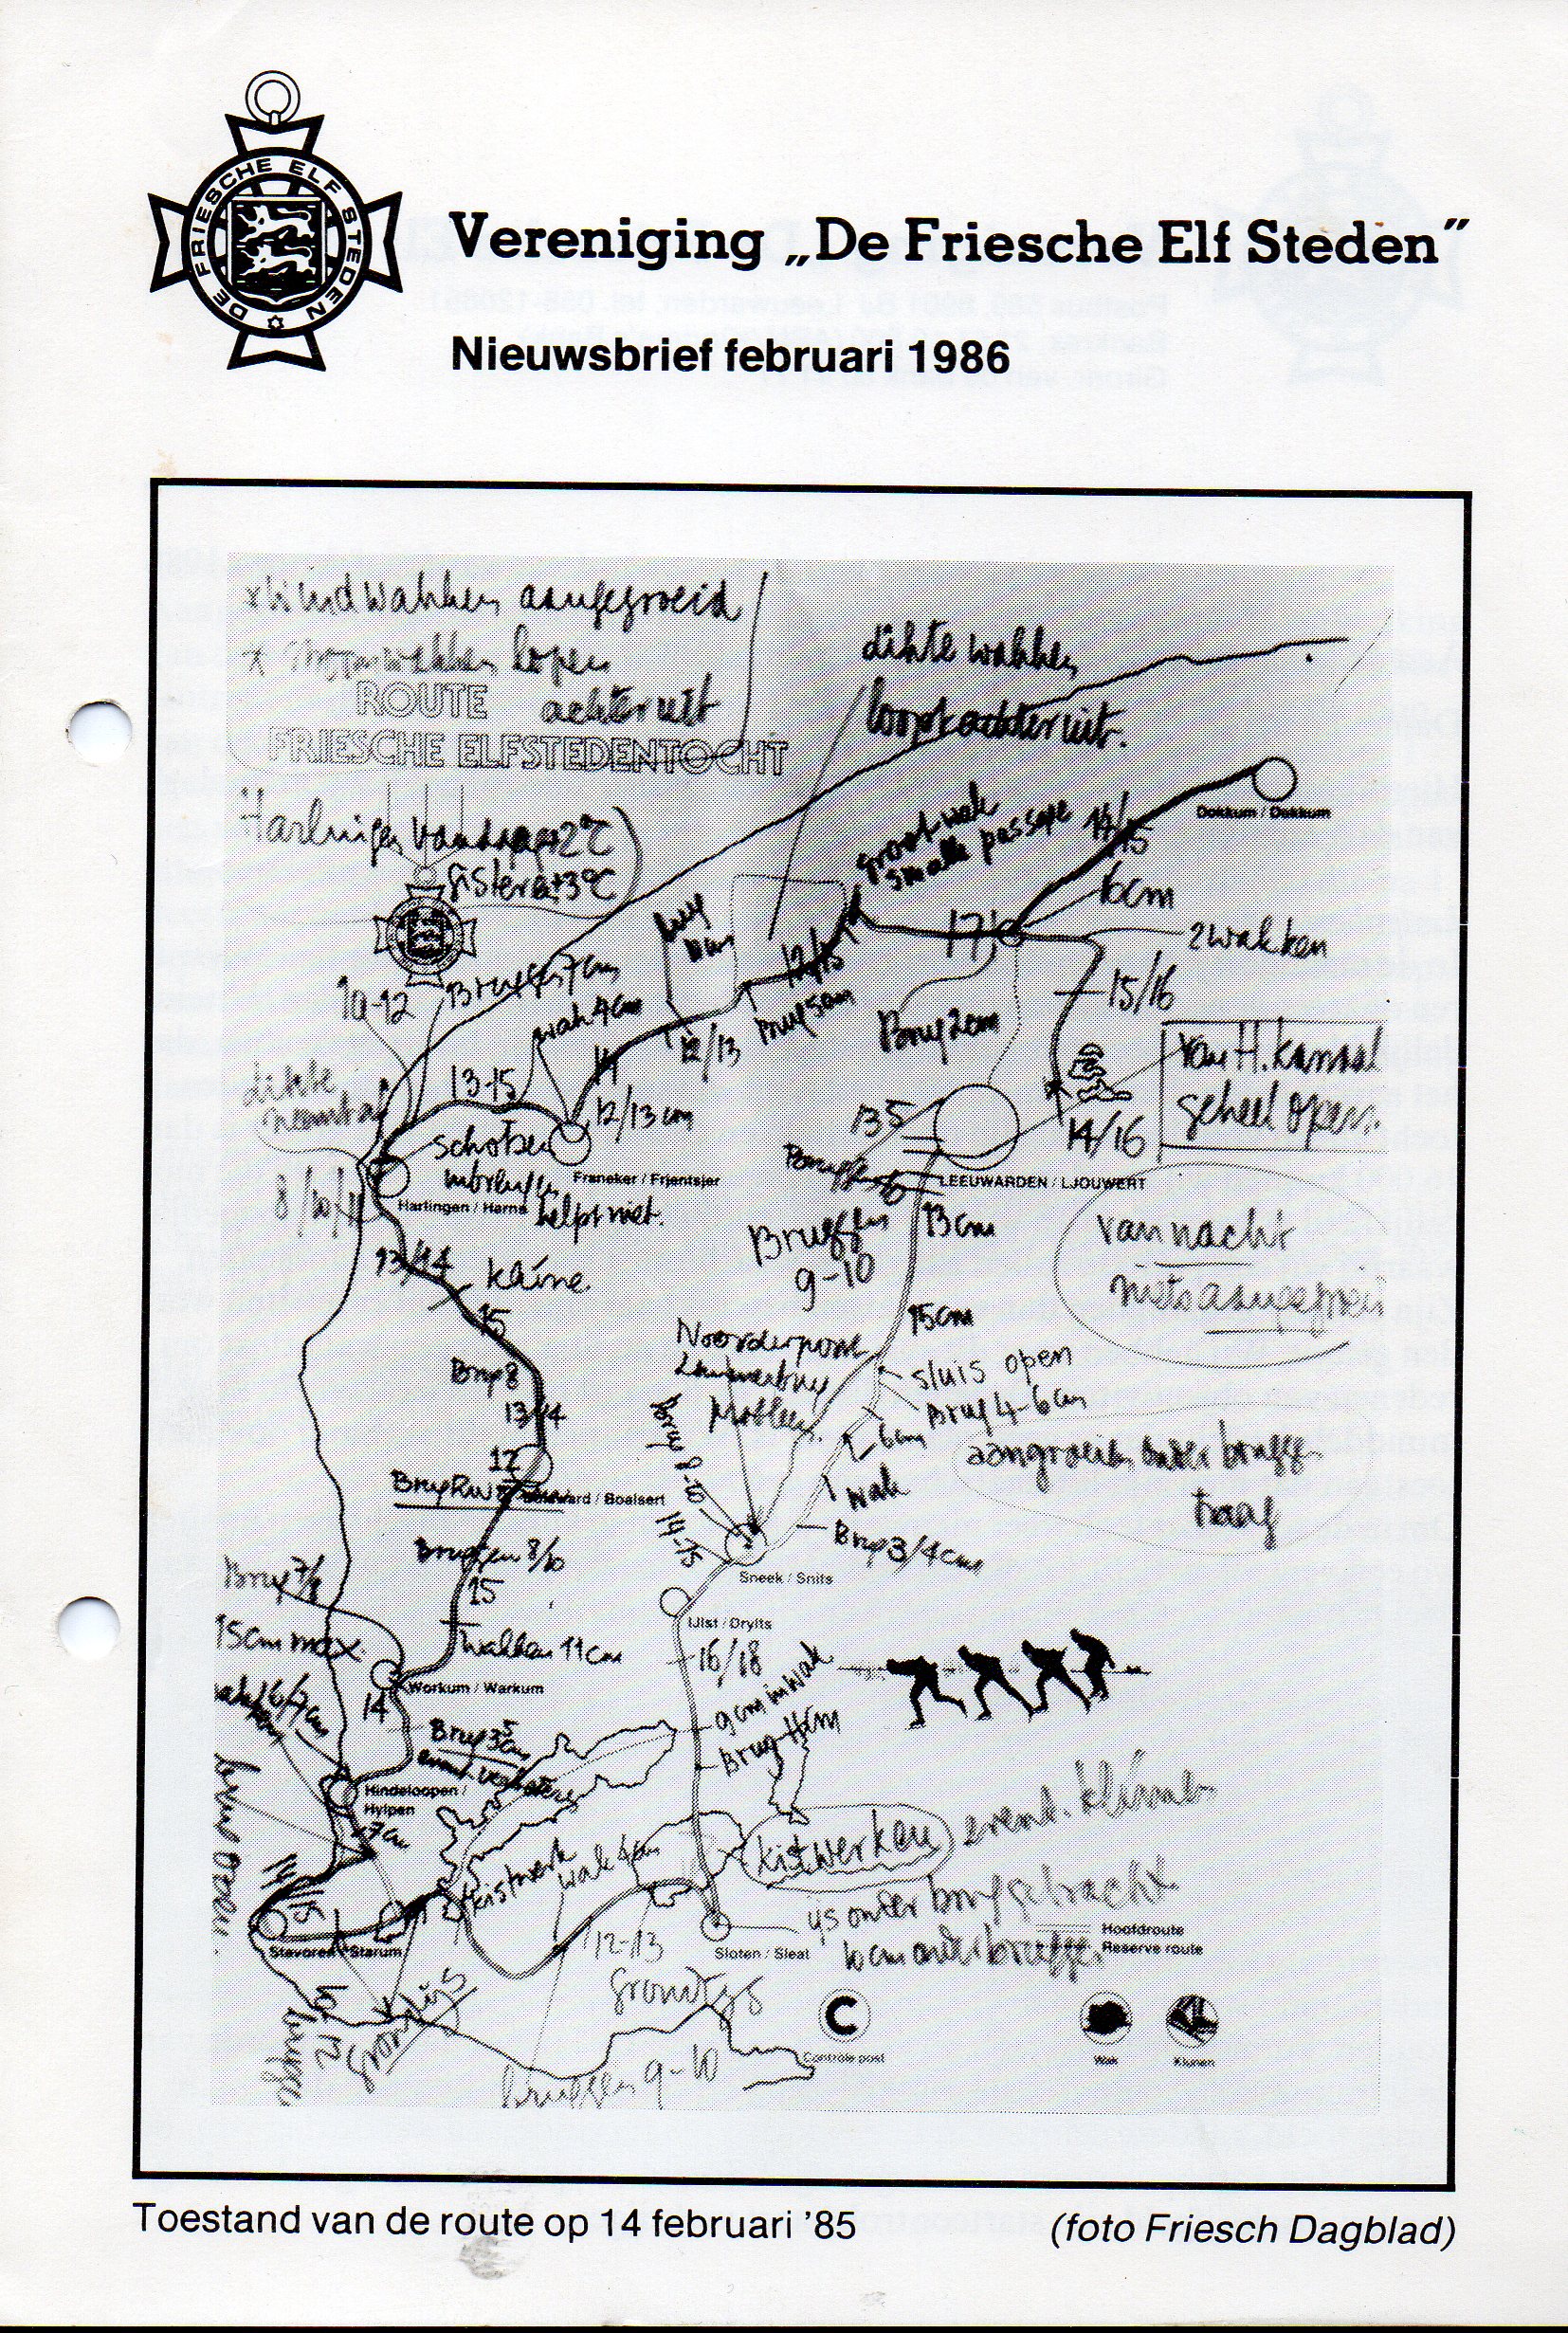 DE FRIESCHE ELF STEDEN
Vereniging „De Friesche Elf Steden”
Nieuwsbrief februari 1986
windwakken aangegroeid
wakken lopen
achteruit
dichte wakken
loopt achteruit.
ROUTE
FRIESCHE ELFSTEDENTOCHT
Harlingen vandaag +2°C
gisteren +3°C
groot wak
smalle passage
14/15
Dokkum / Dokkum
6cm
17
2 wakken
10-12
Bruggen 7cm
wak 4cm
12/13
12/15
Brug 5cm
Brug 2cm
15/16
van H. kanaal
geheel open.
13-15
11
12/13 cm
14/16
dichte
schotsen
helpt niet.
Franeker / Frjentsjer
Harlingen / Harns
8/10/11
135
Bruggen 6
LEEUWARDEN / LJOUWERT
13cm
Bruggen
9-10
vannacht
niets aangegroeid
13/14
klúne
15
15cm
Noorderpoort
sluis open
Brug 4-6cm
6cm
Brug 8
13/14
Brug 8-10
aangroei onder bruggen
traag
12
Bolsward / Boalsert
wak
14-15
Brug 3/4cm
Sneek / Snits
Bruggen 8/10
15
Brug 7/8
IJlst / Drylts
15cm max.
wakken 11cm
16/18
Workum / Warkum
14
9cm in wak
Brug 4cm
6/7cm
Hindeloopen /
Hylpen
7cm
kistwerk
wak 4cm
kistwerken
event. klúnen
14/15
Stavoren / Starum
12-13
Sloten / Sleat
45 onder brug gebracht
10cm onder bruggen
Hoofdroute
Reserve route
grondijs
bruggen 9-10
C
Controle post
Wak
Klunen
Toestand van de route op 14 februari ’85
(foto Friesch Dagblad)